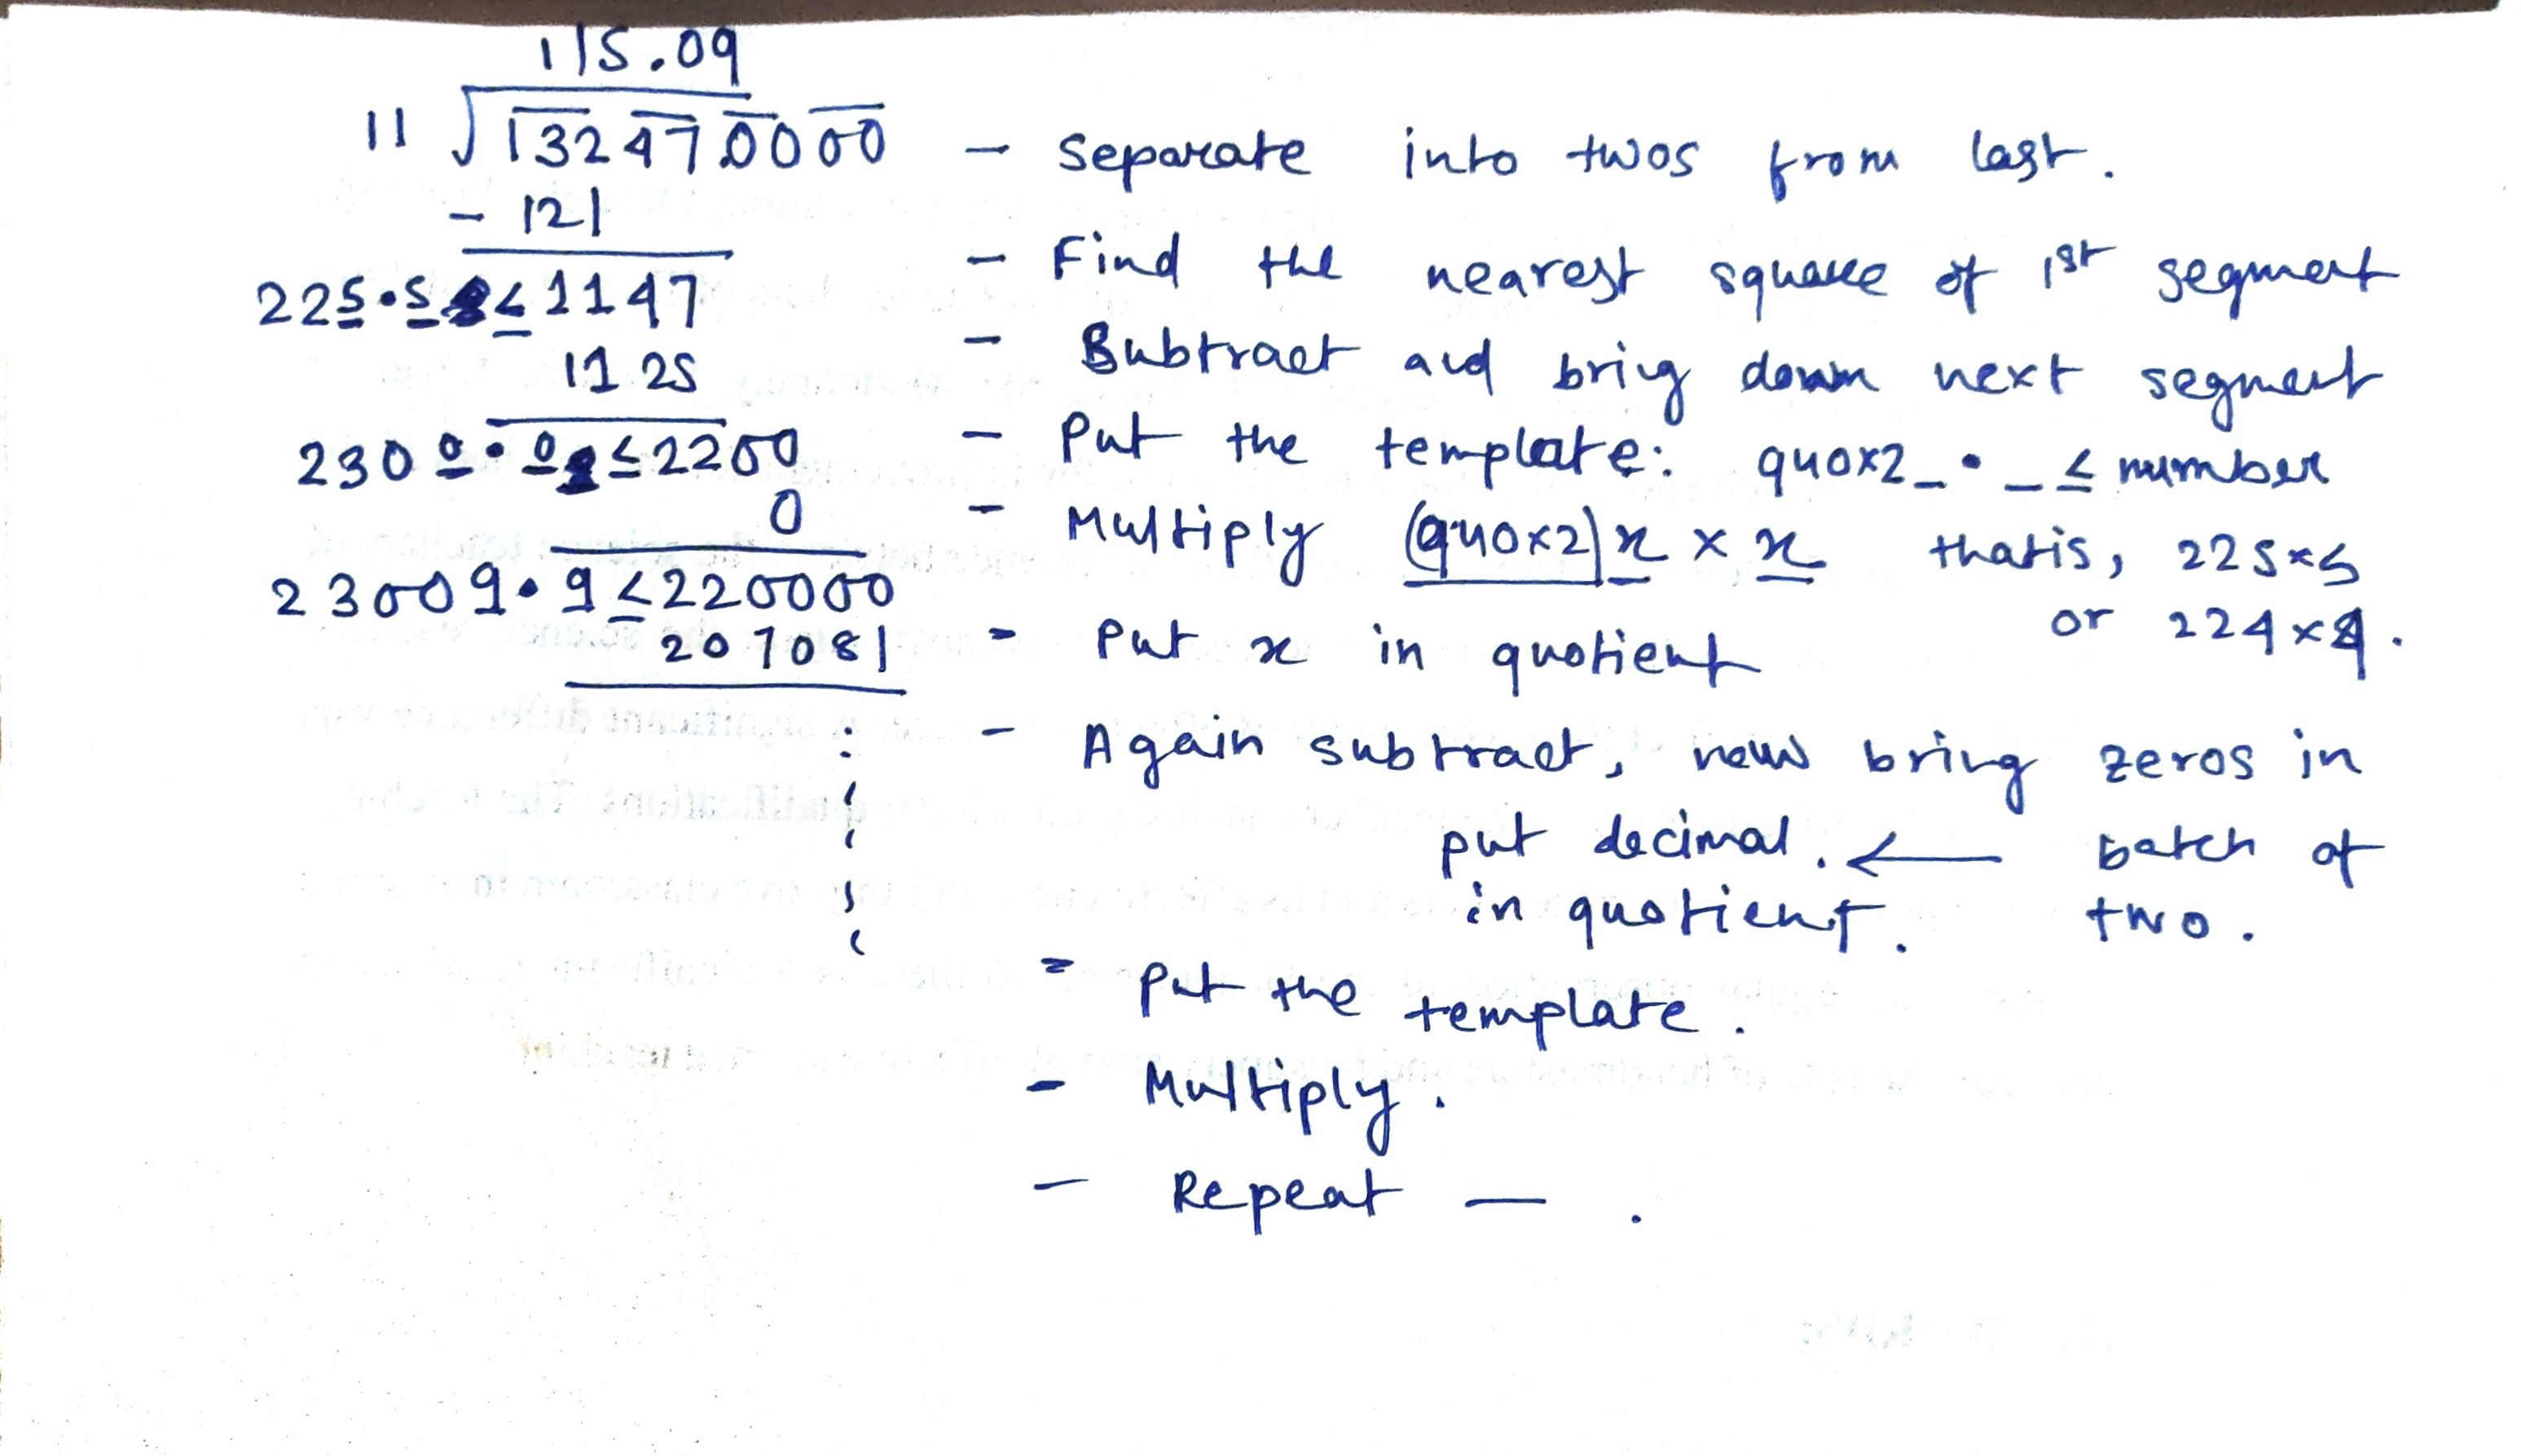 115.09
11 √132 47.00 00
- Separate into twos from last.
- 121
- Find the nearest square of 1st segment
225·5 ≤ 1147
- Subtract and bring down next segment
1125
2300·0 ≤ 2200
- Put the template: quox2_ · _ ≤ number
0
- Multiply (quox2)x × x thatis, 225×5
23009·9 ≤ 220000
or 224×4.
207081
- Put x in quotient
- Again subtract, now bring zeros in
put decimal. ← batch of
in quotient. two.
- Put the template.
- Multiply.
- Repeat — .